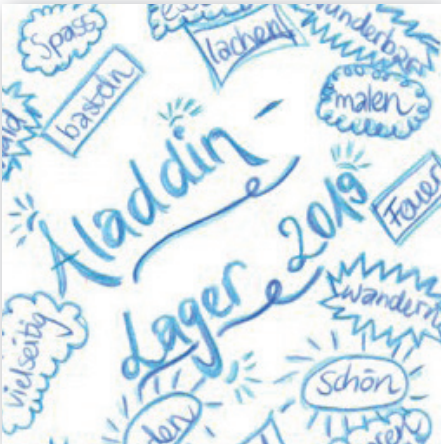 Spass
lachen!
wunderbar
basteln
malen
Aladdin-
Lager 2019
Feuer
wandern
vielseitig
schön